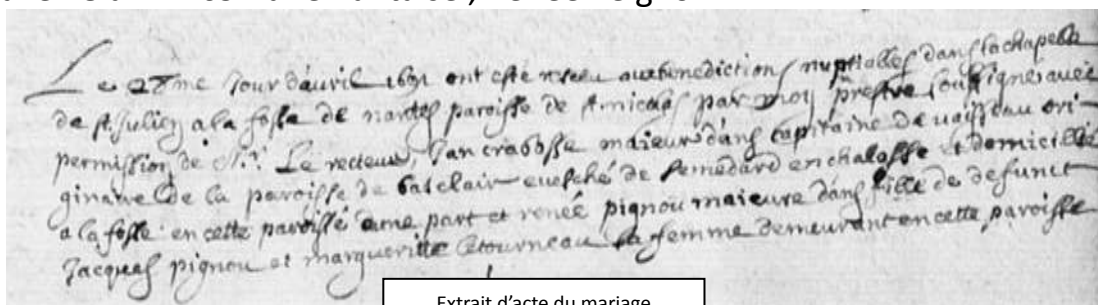 Le 28me Jour dauril 1691 ont esté receu aux benediction nuptialles dans la chapelle
de st Julien a la fosse de nantes paroisse de st nicolas par moy prestre soussigné avec
permission de Mr Le recteur, Jan crabosse maieur dans capitaine de vaisseau ori-
ginaire de la paroisse de enesché de en chalosse et domicillié
a la fosse en cette paroisse dune part et renée pignou maieure dans fille de defunct
Jacques pignou et margueritte letourneau sa femme demeurant en cette paroisse
Extrait d'acte du mariage